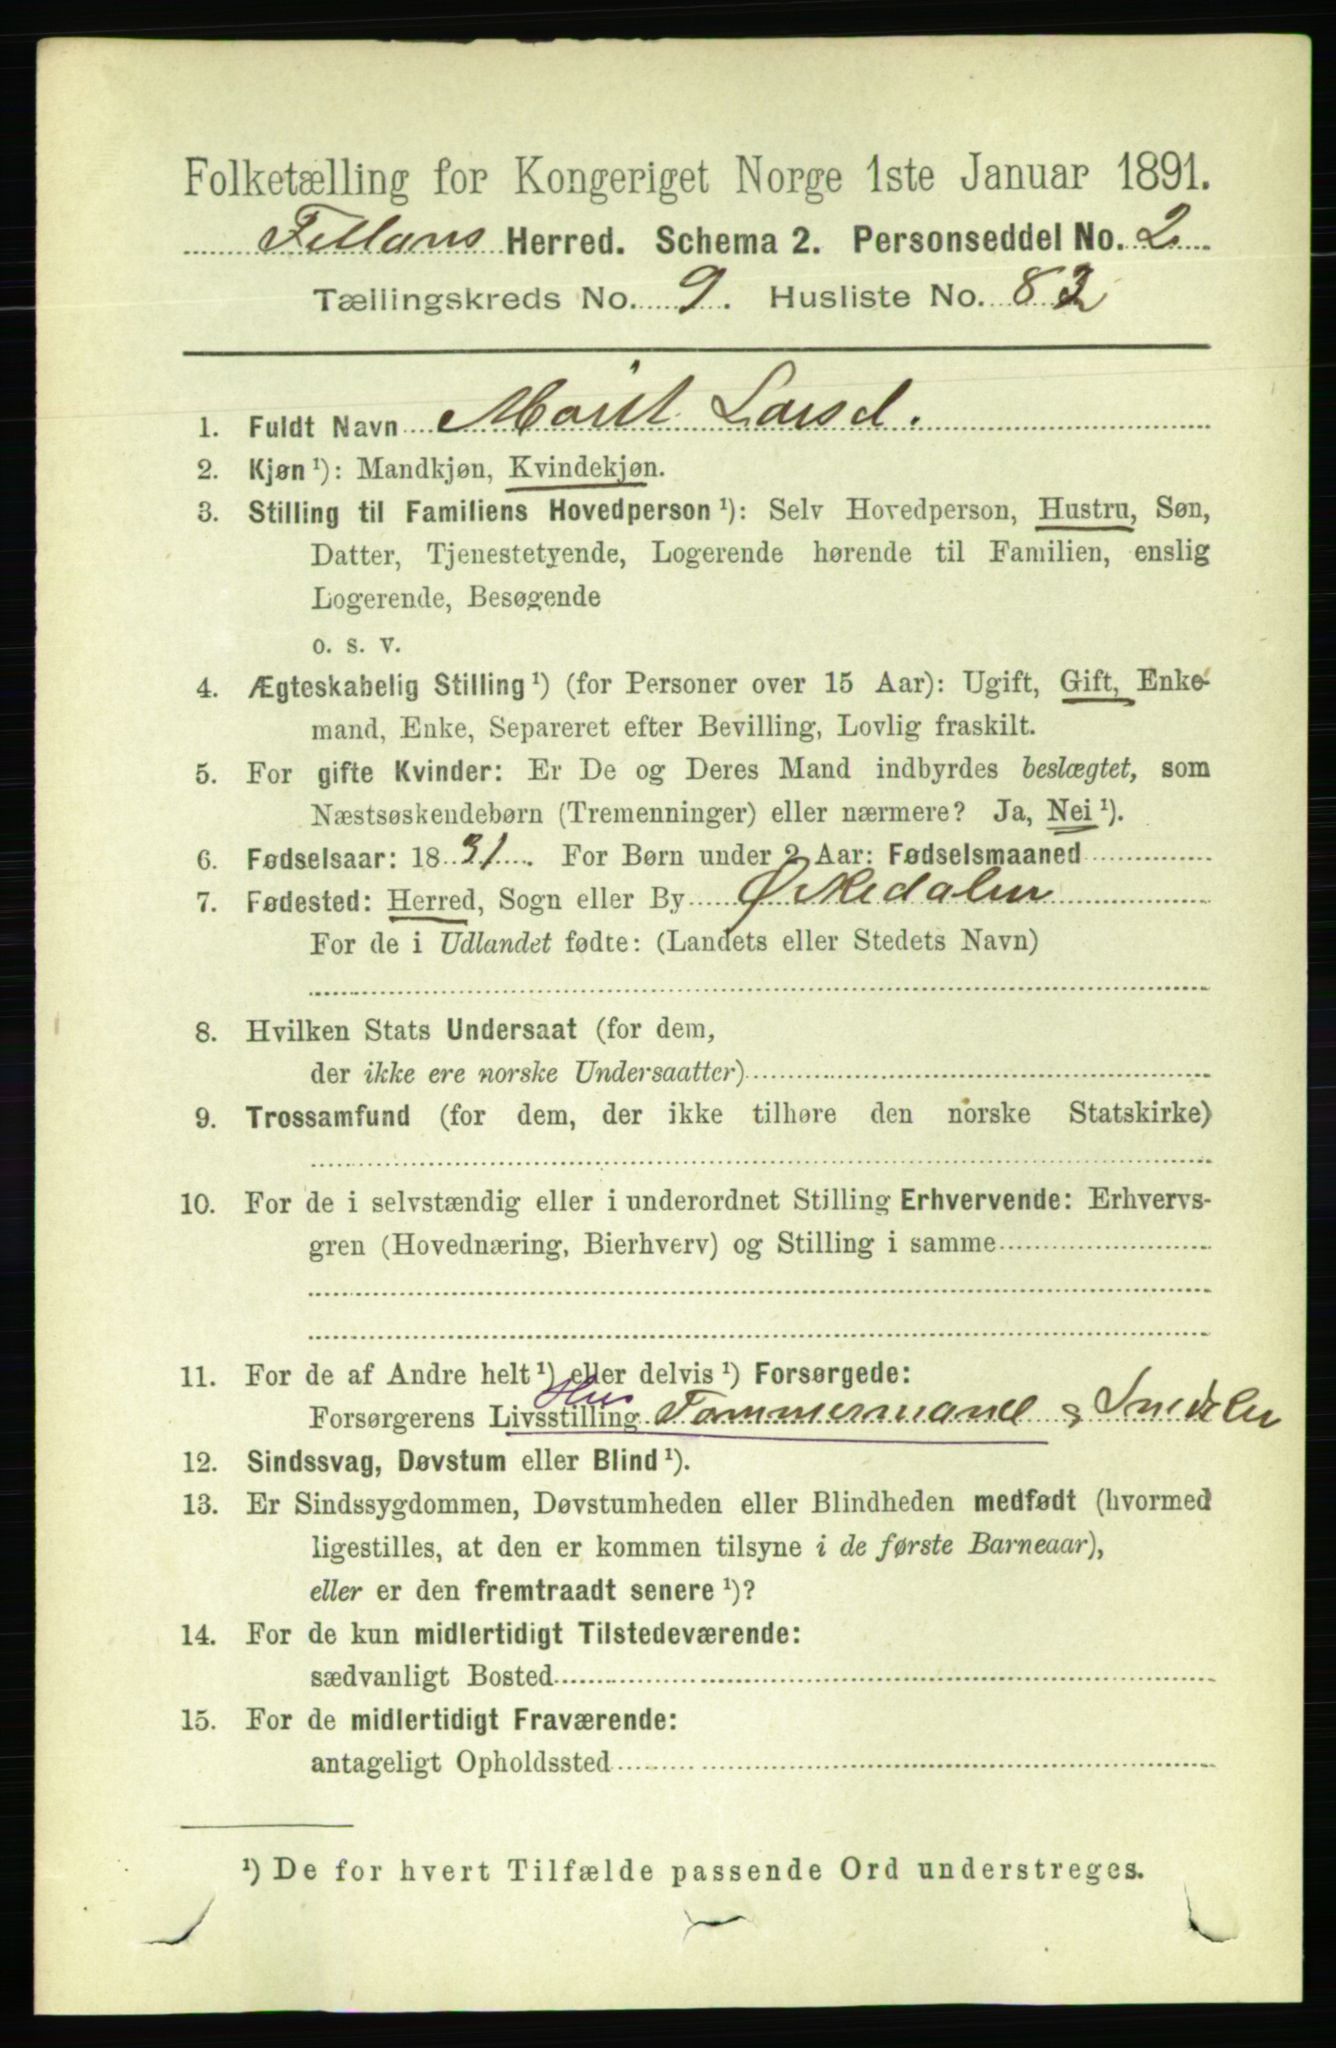 Folketælling for Kongeriget Norge 1ste Januar 1891.
Fillans Herred. Schema 2. Personseddel No. 2
Tællingskreds No. 9. Husliste No. 82
1. Fuldt Navn Marit Larsd.
2. Kjøn ¹): Mandkjøn, Kvindekjøn.
3. Stilling til Familiens Hovedperson ¹): Selv Hovedperson, Hustru, Søn,
Datter, Tjenestetyende, Logerende hørende til Familien, enslig
Logerende, Besøgende
o. s. v.
4. Ægteskabelig Stilling ¹) (for Personer over 15 Aar): Ugift, Gift, Enke-
mand, Enke, Separeret efter Bevilling, Lovlig fraskilt.
5. For gifte Kvinder: Er De og Deres Mand indbyrdes beslægtet, som
Næstsøskendebørn (Tremenninger) eller nærmere? Ja, Nei ¹).
6. Fødselsaar: 1831. For Børn under 2 Aar: Fødselsmaaned
7. Fødested: Herred, Sogn eller By Ørkedalen
For de i Udlandet fødte: (Landets eller Stedets Navn)
8. Hvilken Stats Undersaat (for dem,
der ikke ere norske Undersaatter)
9. Trossamfund (for dem, der ikke tilhøre den norske Statskirke)
10. For de i selvstændig eller i underordnet Stilling Erhvervende: Erhvervs-
gren (Hovednæring, Bierhverv) og Stilling i samme
11. For de af Andre helt ¹) eller delvis ¹) Forsørgede:
Hus
Forsørgerens Livsstilling Tømmermand &
12. Sindssvag, Døvstum eller Blind ¹).
13. Er Sindssygdommen, Døvstumheden eller Blindheden medfødt (hvormed
ligestilles, at den er kommen tilsyne i de første Barneaar),
eller er den fremtraadt senere ¹)?
14. For de kun midlertidigt Tilstedeværende:
sædvanligt Bosted
15. For de midlertidigt Fraværende:
antageligt Opholdssted
¹) De for hvert Tilfælde passende Ord understreges.